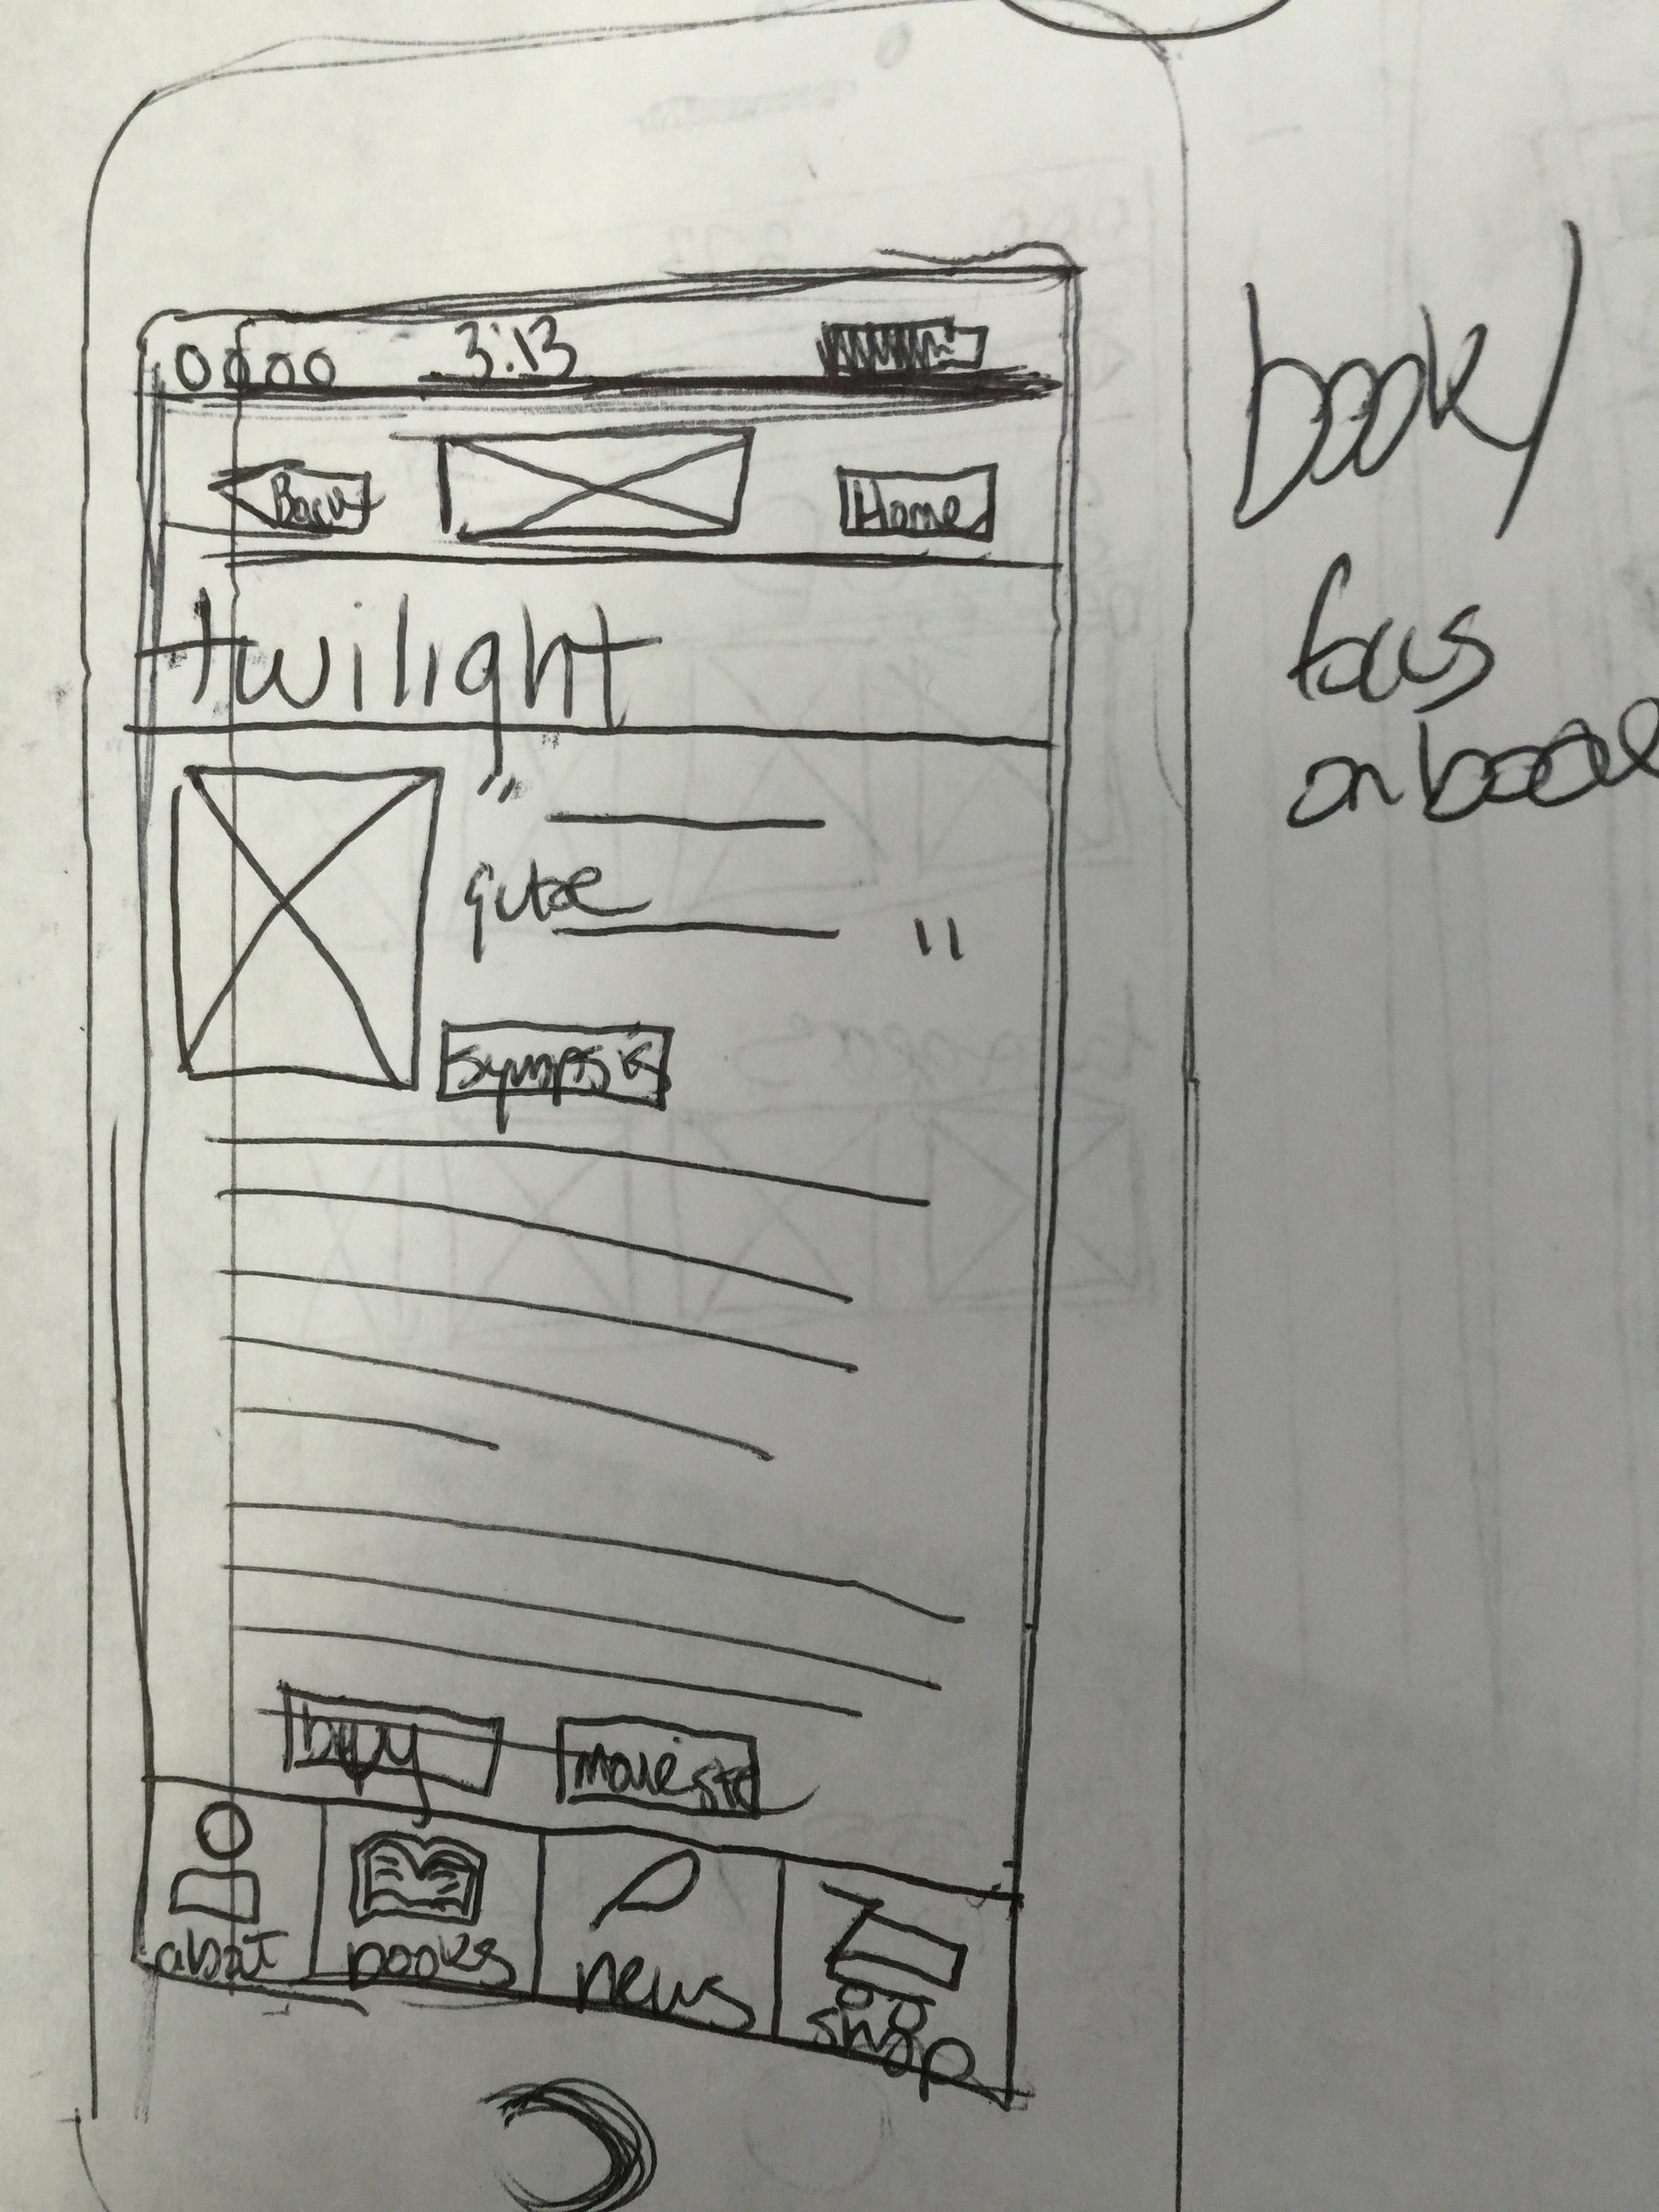 0000 3:13
Back Home
twilight
"
qutoe
"
synopsis
buy
about books news shop
book/
focus
on book